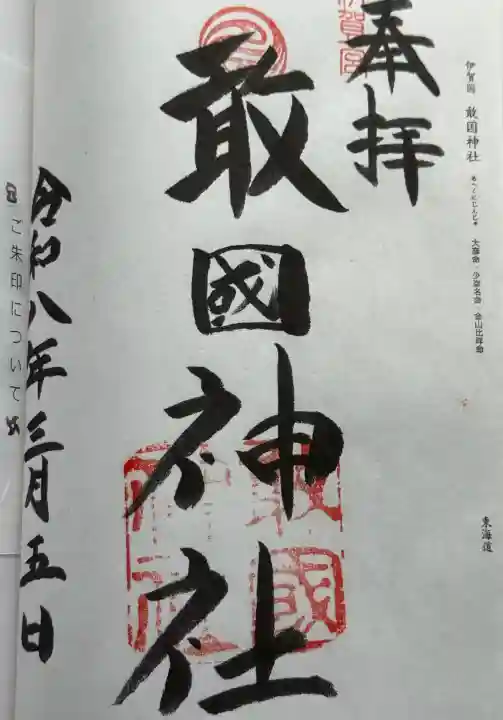 伊賀国 敢国神社 あへくにじんじゃ 大彦命・少彦名命・金山比咩命
東海道
奉拝
敢國神社
令和八年三月五日
ご朱印について
敢國
神社